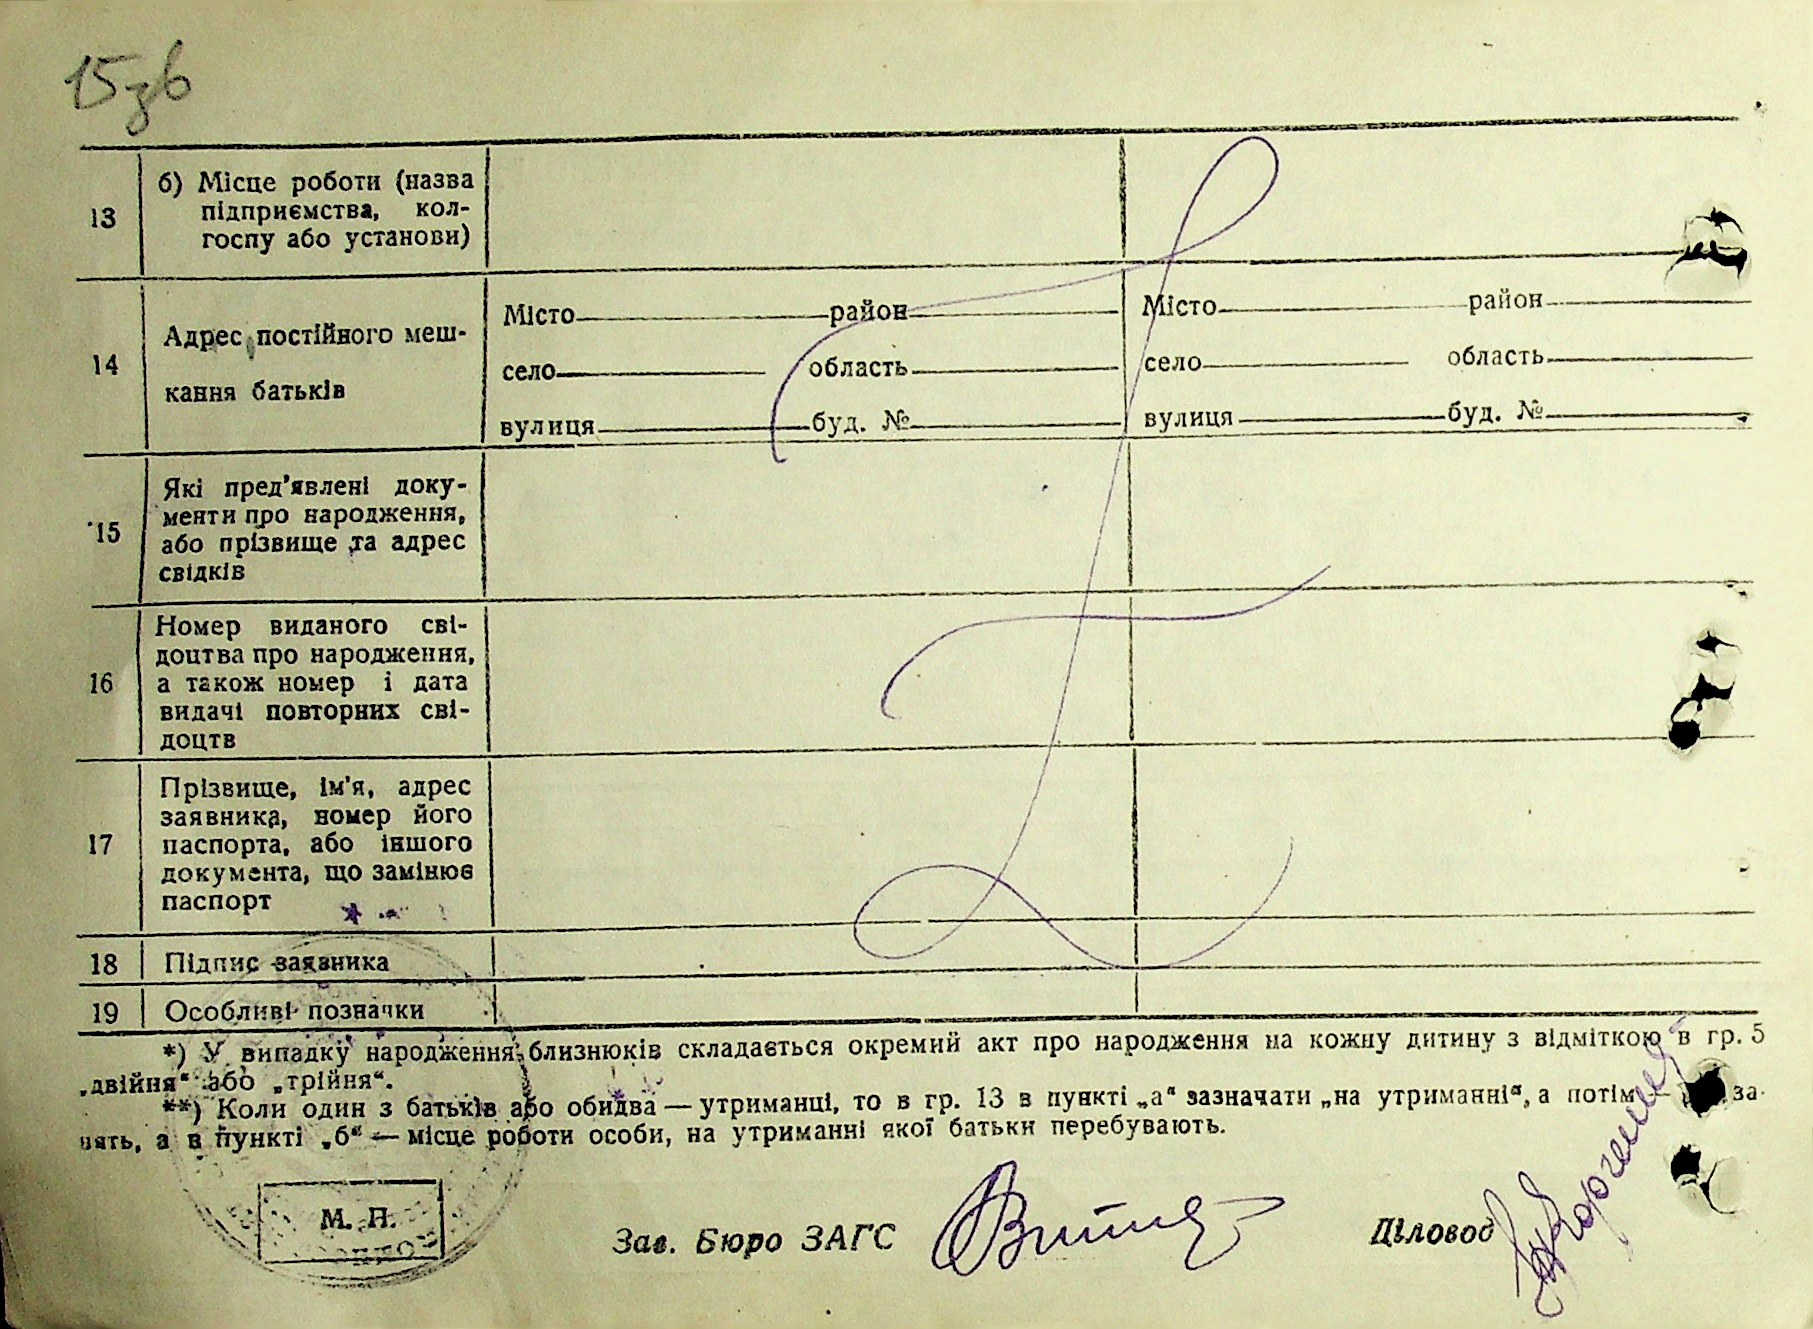 15зв
13
б) Місце роботи (назва
підприємства, кол-
госпу або установи)
14
Адрес постійного меш-
кання батьків
Місто район
село область
вулиця буд. №
Місто район
село область
вулиця буд. №
15
Які пред'явлені доку-
менти про народження,
або прізвище та адрес
свідків
16
Номер виданого сві-
доцтва про народження,
а також номер і дата
видачі повторних сві-
доцтв
17
Прізвище, ім'я, адрес
заявника, номер його
паспорта, або іншого
документа, що замінює
паспорт
18 Підпис заявника
19 Особливі позначки
*) У випадку народження близнюків складається окремий акт про народження на кожну дитину з відміткою в гр. 5
„двійня“ або „трійня“.
**) Коли один з батьків або обидва — утриманці, то в гр. 13 в пункті „а“ зазначати „на утриманні“, а потім — за-
нять, а в пункті „б“ — місце роботи особи, на утриманні якої батьки перебувають.
М. П.
Зав. Бюро ЗАГС
Діловод